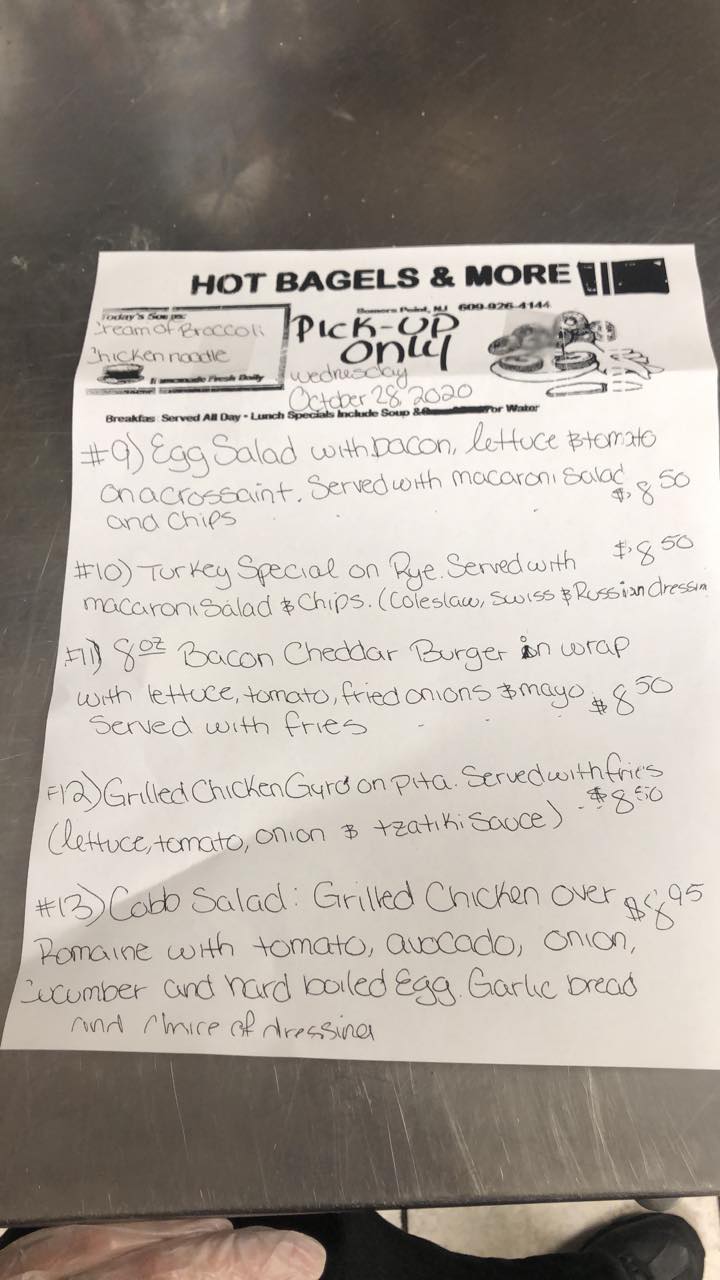 HOT BAGELS & MORE
Somers Point, NJ 609-926-4144
Today's Soups:
Cream of Broccoli
Chicken noodle
Homemade Fresh Daily
PICK-UP
only
Wednesday
October 28, 2020
Breakfas Served All Day • Lunch Specials Include Soup & or Water
#9) Egg Salad with bacon, lettuce & tomato
on a crossaint. Served with macaroni Salad
and chips $8.50
#10) Turkey Special on Rye. Served with $8.50
macaroni salad & Chips. (Coleslaw, Swiss & Russian dressin
#11) 8oz Bacon Cheddar Burger in wrap
with lettuce, tomato, fried onions & mayo $8.50
Served with fries
#12) Grilled Chicken Gyro on pita. Served with fries
(lettuce, tomato, onion & tzatiki Sauce) $8.50
#13) Cobb Salad: Grilled Chicken over $8.95
Romaine with tomato, avocado, onion,
cucumber and hard boiled Egg. Garlic bread
and choice of dressing